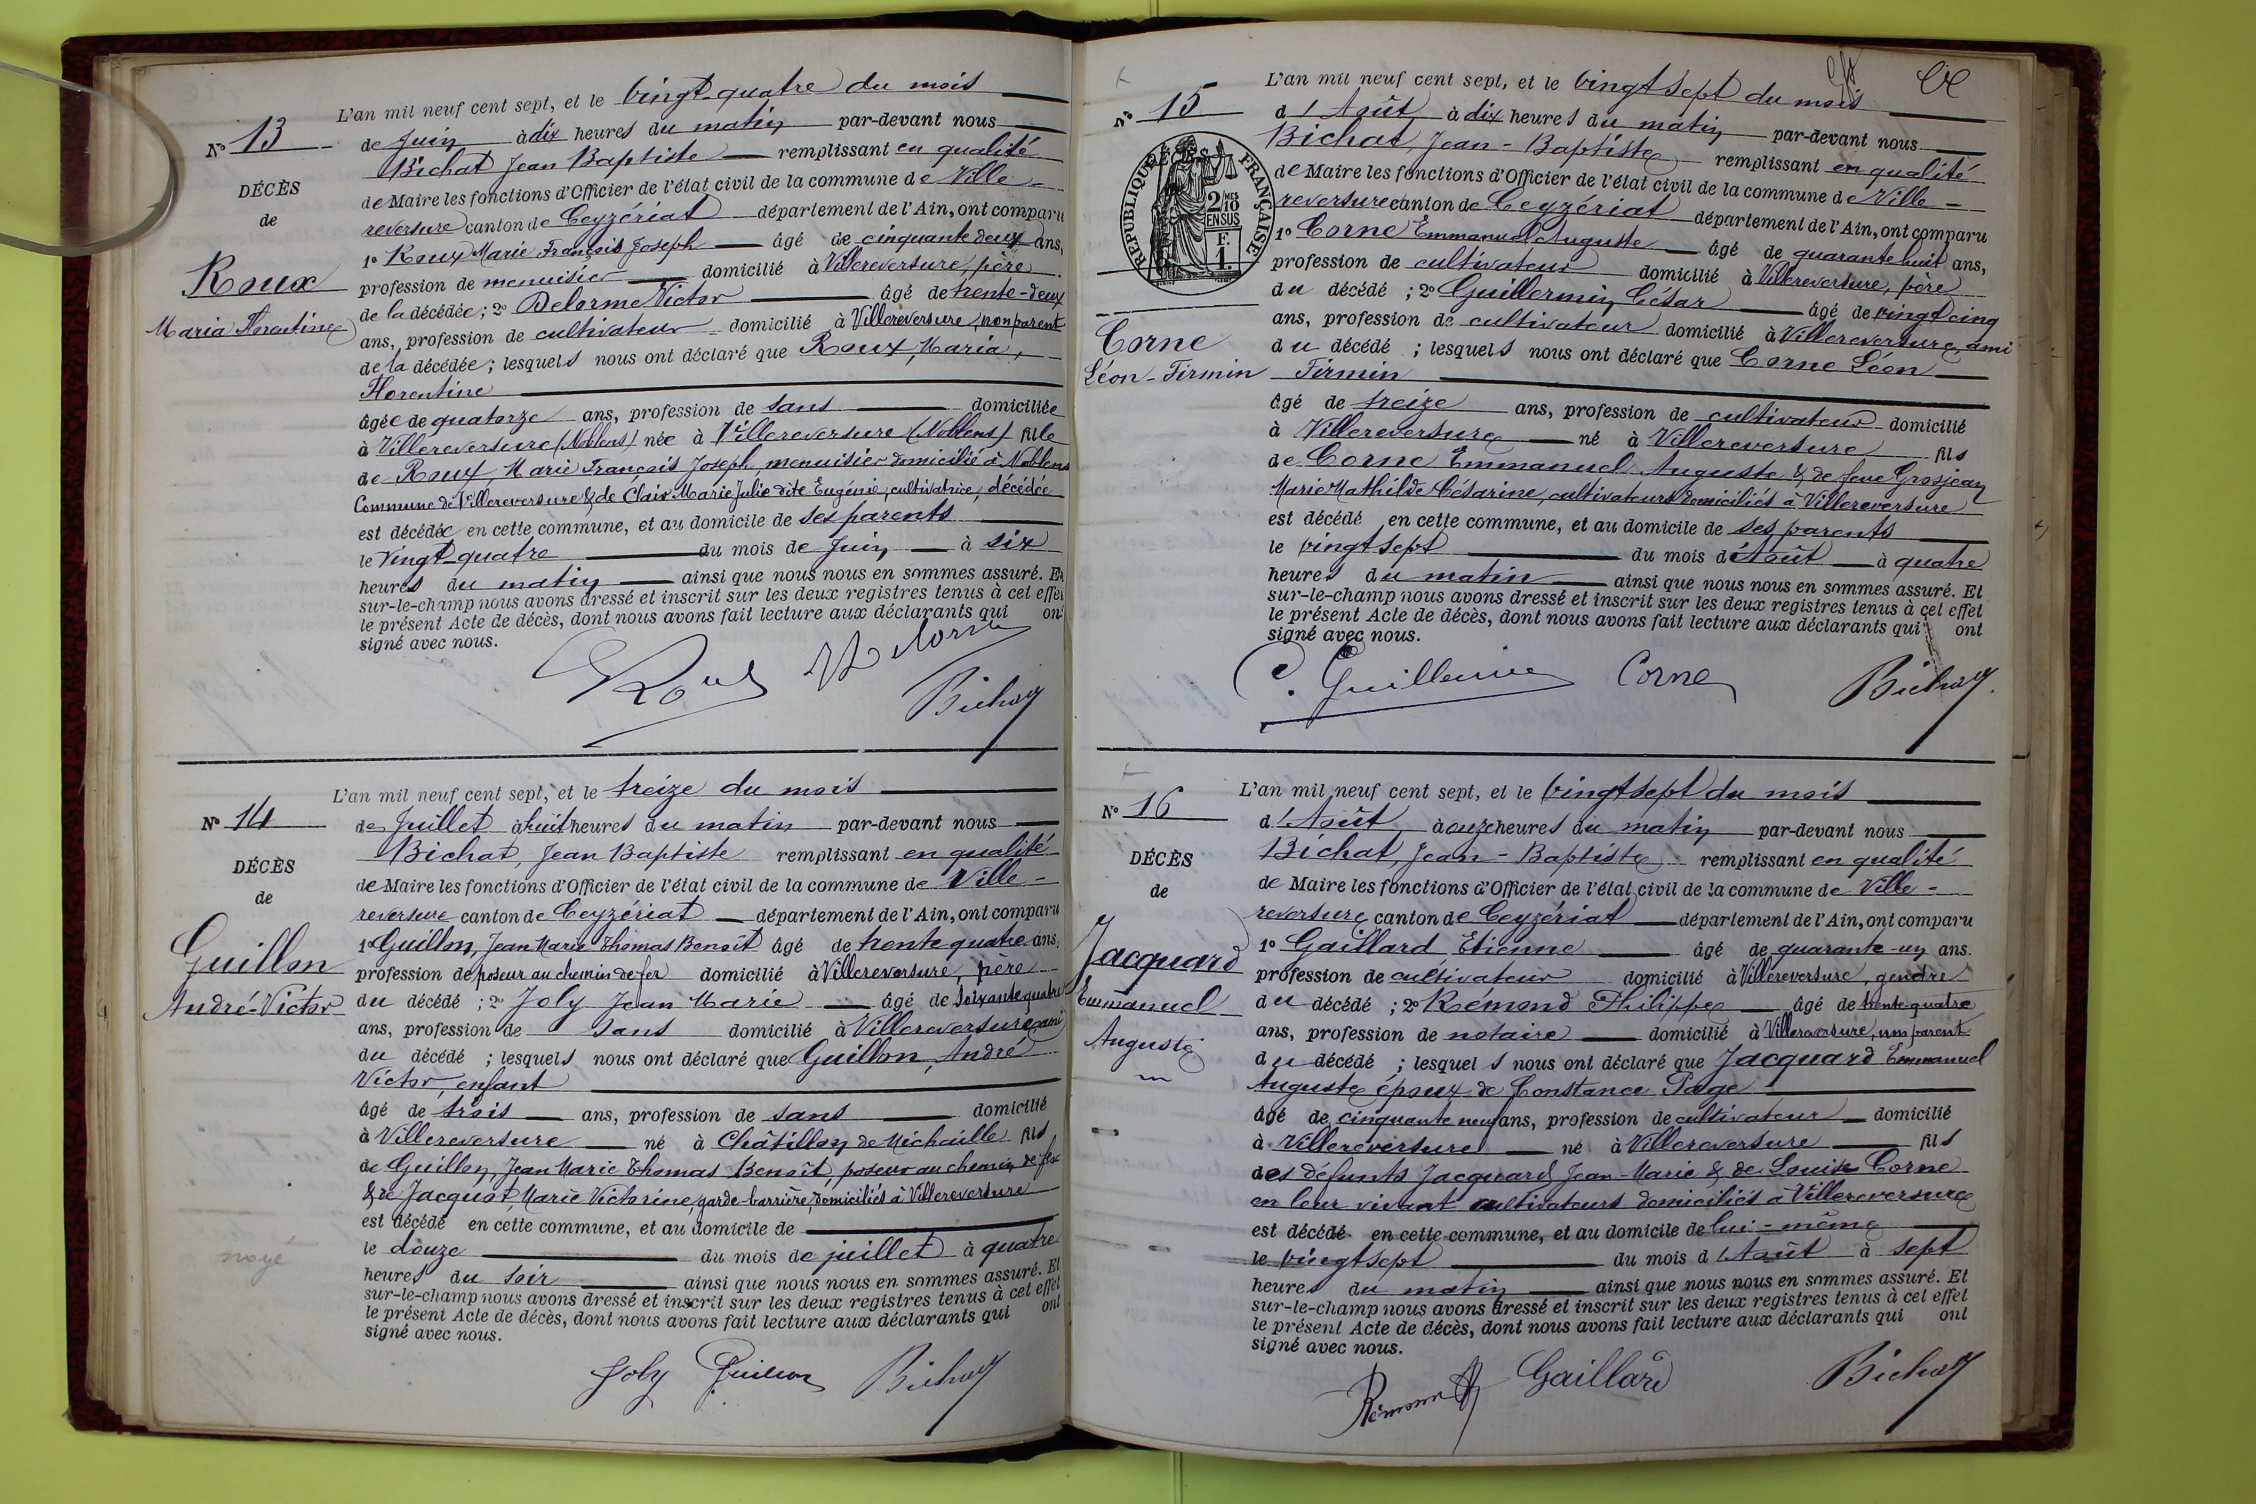 L'an mil neuf cent sept, et le vingt-quatre du mois
N° 13
de Juin à dix heures du matin par-devant nous
Bichat Jean Baptiste remplissant en qualité
DÉCÈS
de Maire les fonctions d'Officier de l'état civil de la commune de Ville-
de
reversure canton de Ceyzériat département de l'Ain, ont comparu
1° Roux Marie François Joseph âgé de cinquante deux ans,
Roux
profession de menuisier domicilié à Villereversure, père
Maria Florentine
de la décédée ; 2° Delorme Victor âgé de trente-deux
ans, profession de cultivateur domicilié à Villereversure, non parent
de la décédée ; lesquels nous ont déclaré que Roux, Maria,
Florentine
âgée de quatorze ans, profession de sans domiciliée
à Villereversure (Noblens) née à Villereversure (Noblens) fille
de Roux, Marie François Joseph, menuisier domicilié à Noblens
Commune de Villereversure & de Clair Marie Julie dite Eugénie, cultivatrice, décédée
est décédée en cette commune, et au domicile de ses parents
le Vingt-quatre du mois de Juin à six
heures du matin ainsi que nous nous en sommes assuré. Et
sur-le-champ nous avons dressé et inscrit sur les deux registres tenus à cet effet
le présent Acte de décès, dont nous avons fait lecture aux déclarants qui ont
signé avec nous.
Roux VDelorme
Bichat
L'an mil neuf cent sept, et le treize du mois
N° 14
de Juillet à huit heures du matin par-devant nous
Bichat, Jean Baptiste remplissant en qualité
DÉCÈS
de Maire les fonctions d'Officier de l'état civil de la commune de Ville-
de
reversure canton de Ceyzériat département de l'Ain, ont comparu
Guillon
1° Guillon, Jean Marie Thomas Benoît âgé de trente quatre ans,
profession de poseur au chemin de fer domicilié à Villereversure, père
André-Victor
du décédé ; 2° Joly Jean Marie âgé de soixante quatre
ans, profession de sans domicilié à Villereversure, ami
du décédé ; lesquels nous ont déclaré que Guillon, André
Victor, enfant
âgé de trois ans, profession de sans domicilié
à Villereversure né à Châtillon de Michaille fils
de Guillon, Jean Marie Thomas Benoît, poseur au chemin de fer
& de Jacquot, Marie Victorine, garde-barrière, domiciliés à Villereversure
est décédé en cette commune, et au domicile de
noyé
le douze du mois de juillet à quatre
heures du soir ainsi que nous nous en sommes assuré. Et
sur-le-champ nous avons dressé et inscrit sur les deux registres tenus à cet effet
le présent Acte de décès, dont nous avons fait lecture aux déclarants qui ont
signé avec nous.
Joly Guillon Bichat
L'an mil neuf cent sept, et le vingt sept du mois
N° 15
d'Août à dix heures du matin par-devant nous
Bichat, Jean-Baptiste remplissant en qualité
DÉCÈS
RÉPUBLIQUE FRANÇAISE
2/10 MES
EN SUS
F.
1.
de Maire les fonctions d'Officier de l'état civil de la commune de Ville-
reversure canton de Ceyzériat département de l'Ain, ont comparu
1° Corne Emmanuel Auguste âgé de quarante huit ans,
profession de cultivateur domicilié à Villereversure, père
du décédé ; 2° Guillermin César âgé de vingt cinq
ans, profession de cultivateur domicilié à Villereversure, ami
Corne
du décédé ; lesquels nous ont déclaré que Corne Léon
Léon-Firmin
Firmin
âgé de treize ans, profession de cultivateur domicilié
à Villereversure né à Villereversure fils
de Corne Emmanuel Auguste & de feue Grosjean
Marie Mathilde Césarine, cultivateurs domiciliés à Villereversure
est décédé en cette commune, et au domicile de ses parents
le vingt sept du mois d'Août à quatre
heures du matin ainsi que nous nous en sommes assuré. Et
sur-le-champ nous avons dressé et inscrit sur les deux registres tenus à cet effet
le présent Acte de décès, dont nous avons fait lecture aux déclarants qui ont
signé avec nous.
C. Guillermin Corne Bichat
L'an mil neuf cent sept, et le vingt sept du mois
N° 16
d'Août à onze heures du matin par-devant nous
Bichat, Jean-Baptiste remplissant en qualité
DÉCÈS
de Maire les fonctions d'Officier de l'état civil de la commune de Ville-
de
reversure canton de Ceyzériat département de l'Ain, ont comparu
Jacquard
1° Gaillard Etienne âgé de quarante-un ans.
profession de cultivateur domicilié à Villereversure, gendre
Emmanuel
du décédé ; 2° Rémond Philippe âgé de trente-quatre
ans, profession de notaire domicilié à Villereversure, non parent
Auguste
du décédé ; lesquels nous ont déclaré que Jacquard Emmanuel
Auguste époux de Constance Page
âgé de cinquante neuf ans, profession de cultivateur domicilié
à Villereversure né à Villereversure fils
des défunts Jacquard Jean-Marie & de Louise Corne
en leur vivant cultivateurs domiciliés à Villereversure
est décédé en cette commune, et au domicile de lui-même
le vingt sept du mois d'Août à sept
heures du matin ainsi que nous nous en sommes assuré. Et
sur-le-champ nous avons dressé et inscrit sur les deux registres tenus à cet effet
le présent Acte de décès, dont nous avons fait lecture aux déclarants qui ont
signé avec nous.
Rémond Gaillard Bichat